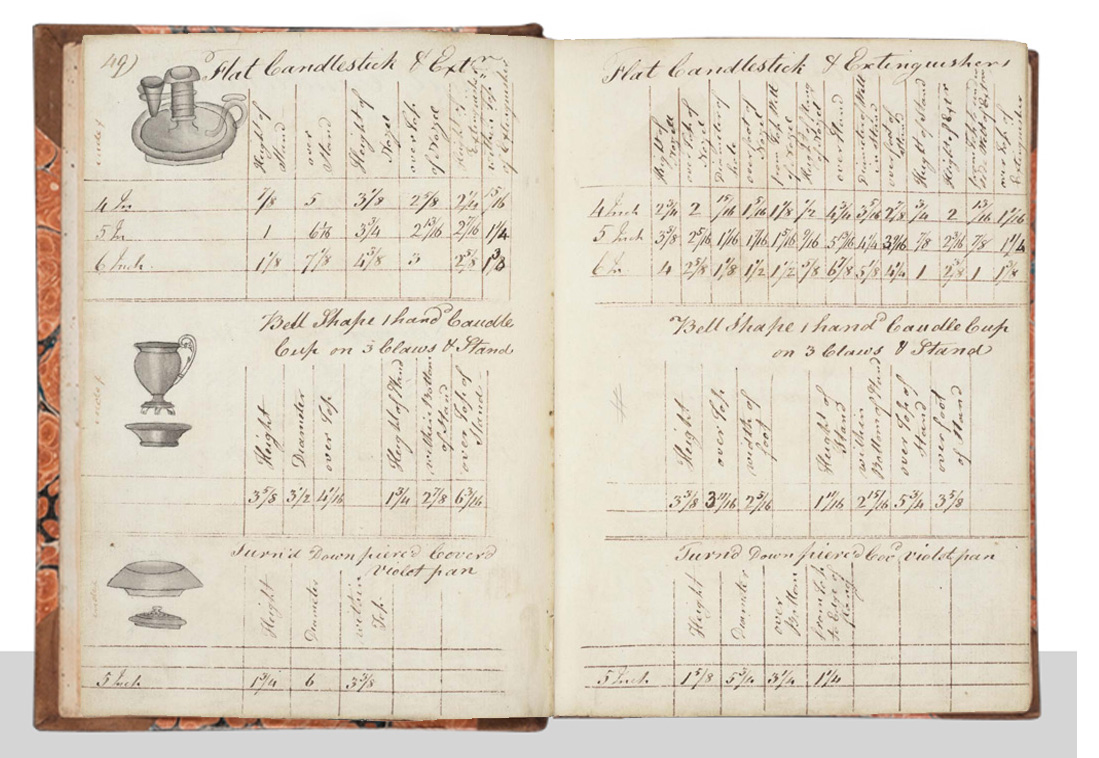 49)
Flat Candlestick & Extr
Height of Stand
over Stand
Height of Nozel
over Top of Nozel
Height of Extinguisher
within Top of Extinguisher
4 In 7/8 5 3 1/8 2 5/8 2 1/4 15/16
5 In 1 3 3/4 2 13/16 2 7/16 1 1/4
6 Inch 1 1/8 7 1/8 4 5/8 3 2 5/8 1 3/8
Bell Shape 1 hand Caudle
Cup on 3 Claws & Stand
Height
Diameter
over Top
Height of Stand
within Bottom of Stand
over Top of Stand
3 5/8 3 1/2 4 1/16 1 3/4 2 7/8 6 3/16
Turn'd Down pierc'd Cover'd
violet pan
Height
Diameter
within Top
5 Inch 1 3/4 6 3 3/8
Flat Candlestick & Extinguishers
Height of Nozell
over Top of Nozel
Diameter of
over foot of Nozel
from Top
of Nozel
over Stand
Diameter of Well in Stand
over foot of Stand
Height of Stand
Height of Exter
over Top of Extinguisher
4 Inch 2 3/4 2 15/16 1 5/16 1 1/8 1/2 4 3/4 3 5/16 2 7/8 3/4 2 13/16
5 Inch 3 3/8 2 5/16 1 1/16 1 7/16 1 5/16 9/16 5 4 1/4 3 9/16 7/8 2 3/16 7/8 1 1/4
6 In 4 2 5/8 1 1/8 1 1/2 1 1/2 5/8 6 5/8 5 1/8 4 1/4 1 2 3/8 1 1 3/8
Bell Shape 1 hand Caudle Cup
on 3 Claws & Stand
Height
over Top
width of foot
Height of Stand
within Bottom of Stand
over Top of Stand
over foot of Stand
3 3/8 3 11/16 2 5/16 1 11/16 2 15/16 5 3/4 3 5/8
Turn'd Down pierc'd Cov'd violet pan
Height
Diameter
over Bottom
from Top to Edge of flang
5 Inch 1 5/8 5 3/4 3 1/4 1 1/4